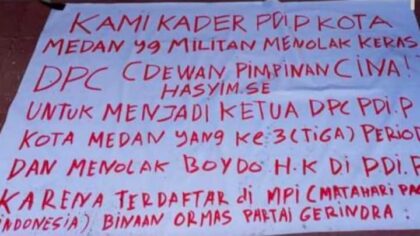 KAMI KADER PDiP KOTA
MEDAN yg MILITAN MENOLAK KERAS
DPC (DEWAN PIMPINAN CINA)
HASYIM.SE
UNTUK MENJADI KETUA DPC PDi.P
KOTA MEDAN YANG KE 3 (TiGA) PERIOD
DAN MENOLAK BOYDO H.K Di PDi.P
KARENA TERDAFTAR di MPi (MATAHARI PA
INDONESIA) BINAAN ORMAS PARTAI GERINDRA